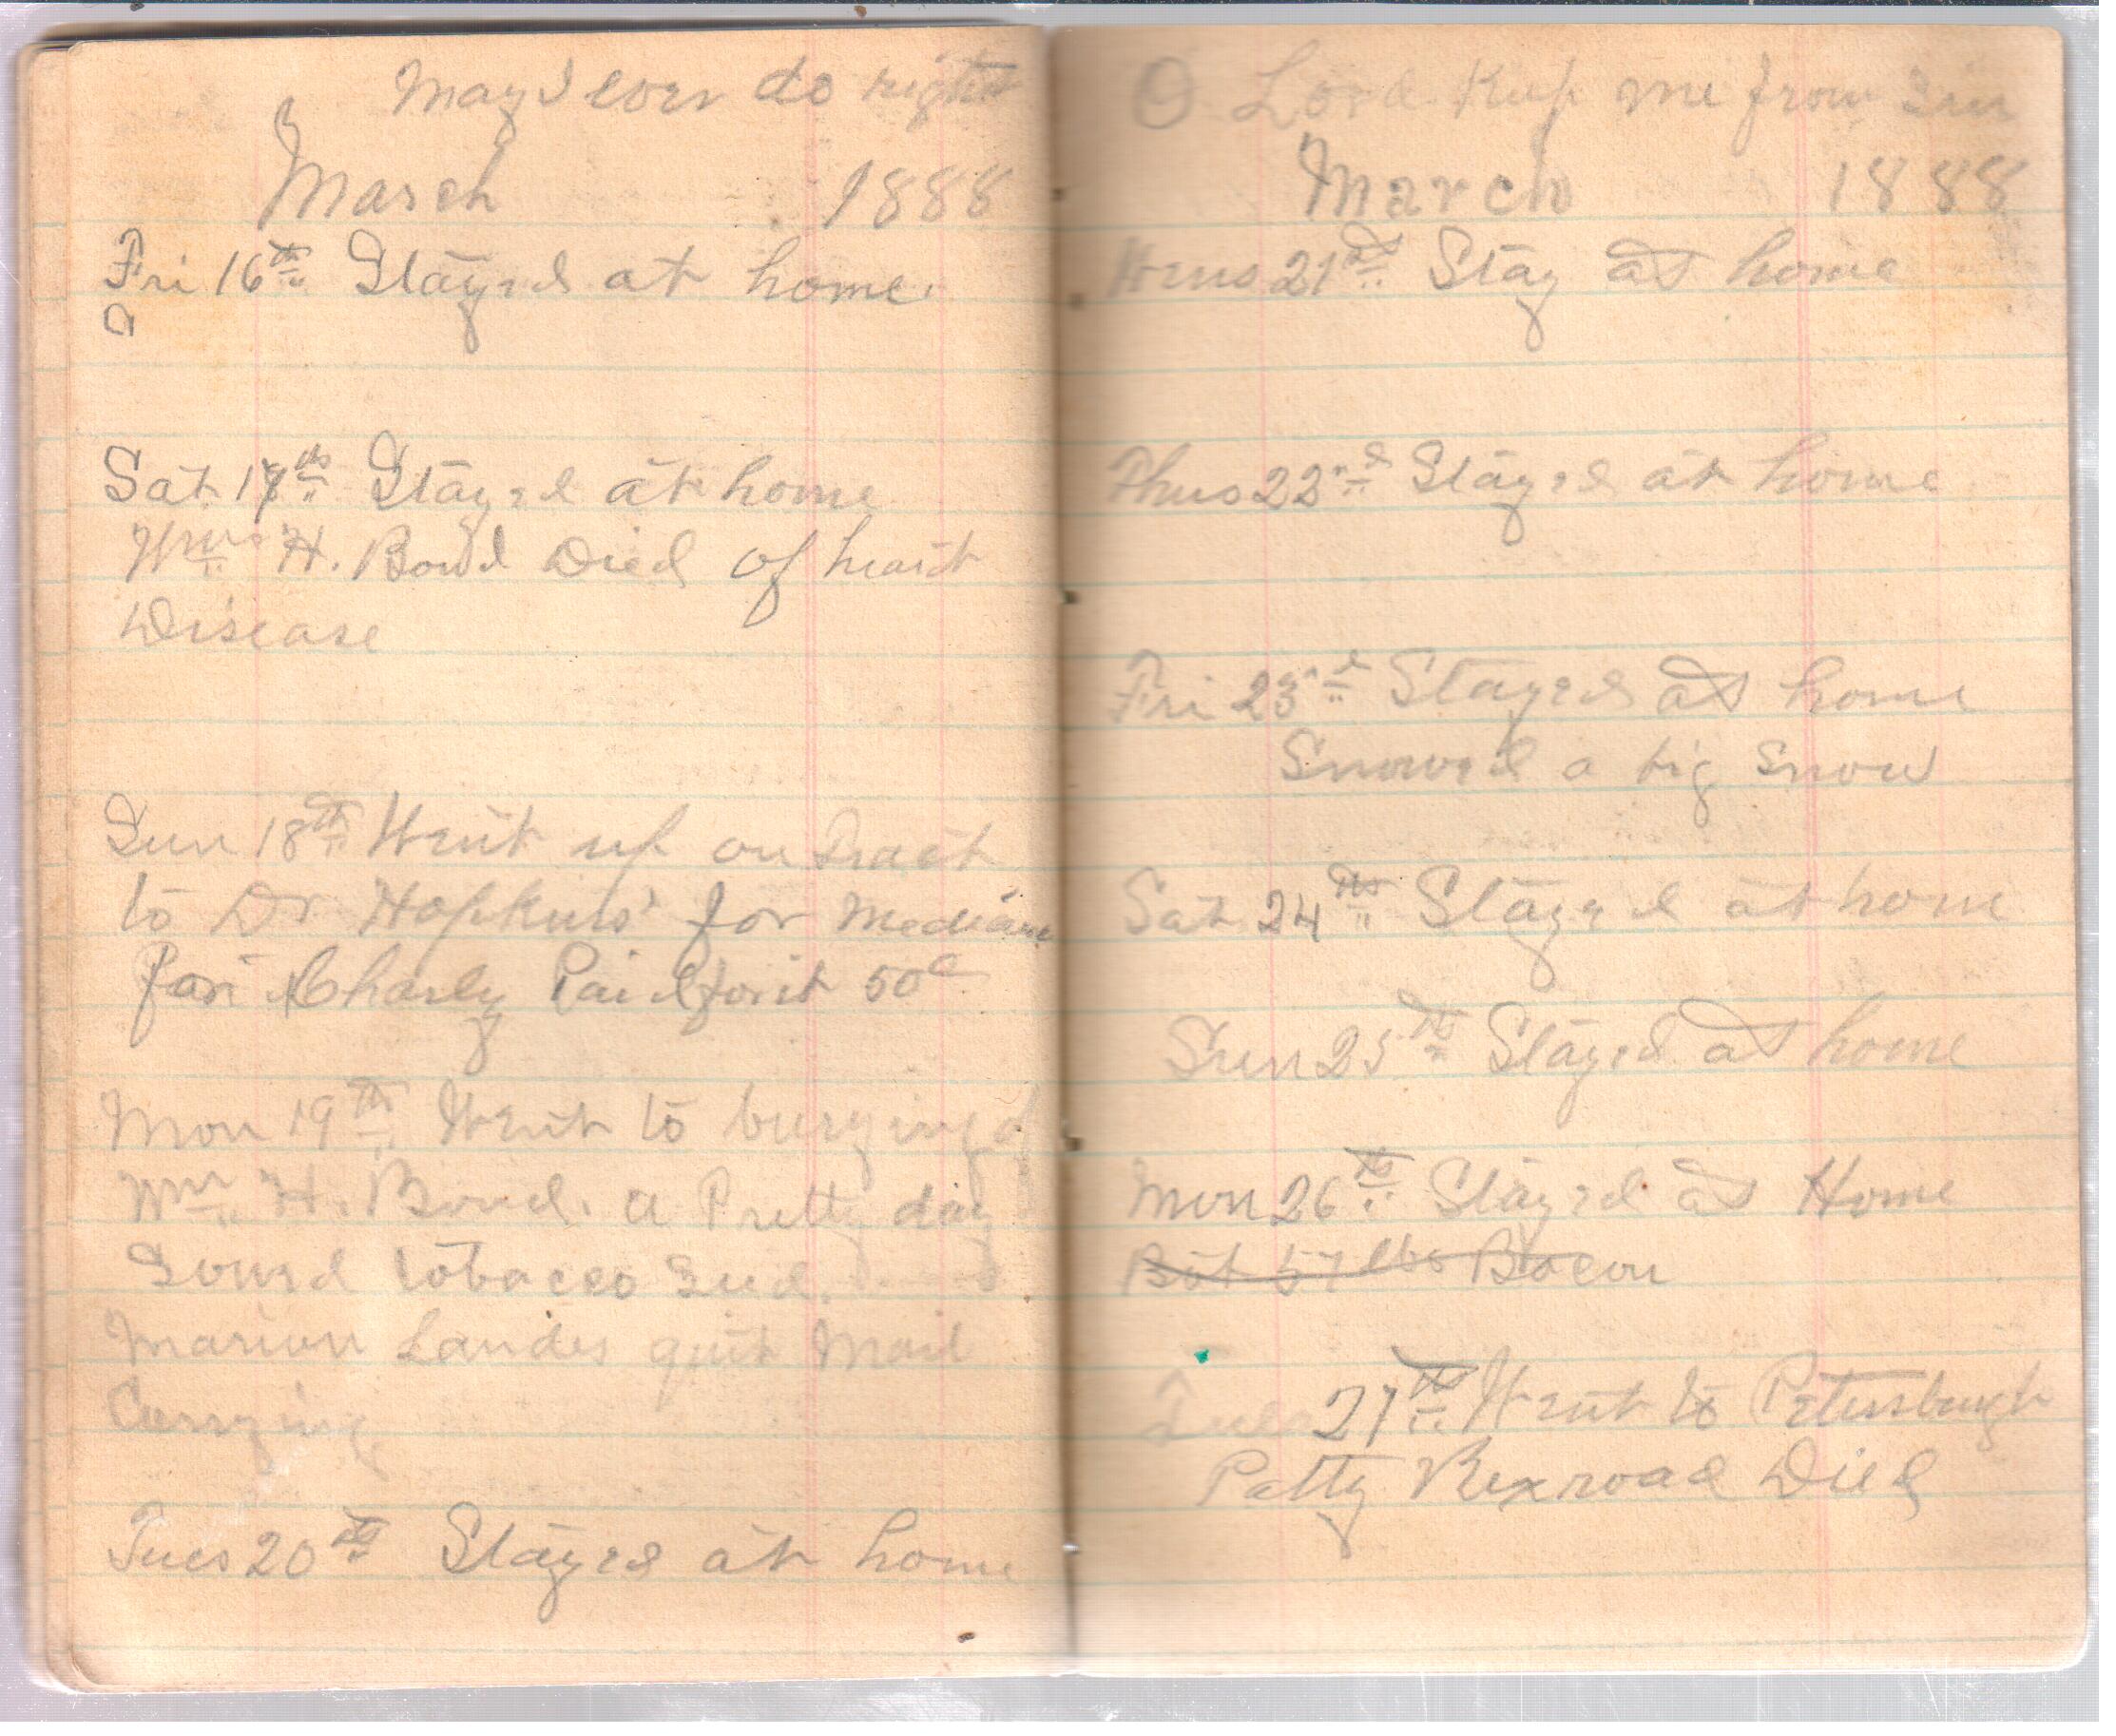 May I ever do right
March 1888
Fri 16th Stayed at home.
Sat 17th Stayed at home
Wm H. Bond Died of heart
Disease
Sun 18th Went up on Tract
to Dr Hopkins' for Medicine
for Charly Paid for it 50c
Mon 19th Went to burying of
Wm H. Bond. a Pretty day
Sowed tobacco Seed.
Marion Landes quit Mail
Carrying
Tues 20th Stayed at home
O Lord Keep me from Sin
March 1888
Wens 21st Stay at home
Thus 22nd Stayed at home
Fri 23rd Stayed at home
Snowed a big Snow
Sat 24th Stayed at home
Sun 25th Stayed at home
Mon 26th Stayed at Home
Bot 57 lbs Bacon
Tues 27th Went to Petersburgh
Patty Rexroad Died